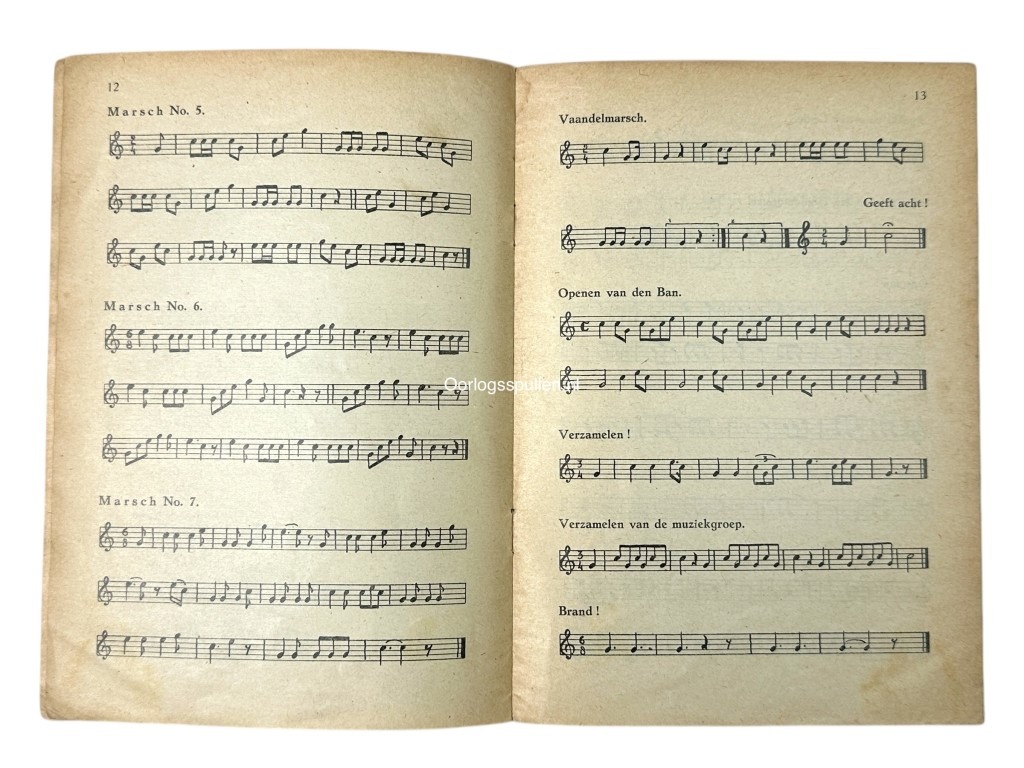 12
Marsch No. 5.
Marsch No. 6.
Marsch No. 7.
13
Vaandelmarsch.
Geeft acht !
Openen van den Ban.
Verzamelen !
Verzamelen van de muziekgroep.
Brand !
Oorlogsspullen.nl